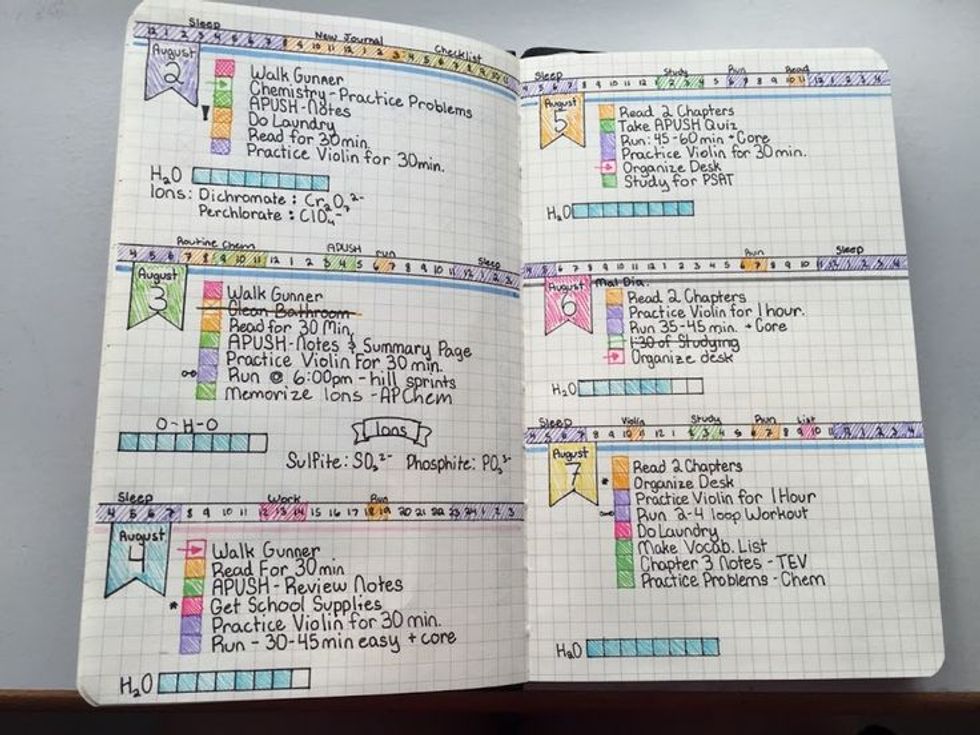 Sleep New Journal Checklist
August 2
Walk Gunner
Chemistry - Practice Problems
APUSH - Notes
! Do Laundry
Read for 30min.
Practice Violin for 30min.
H₂O
Ions: Dichromate : Cr₂O₇²⁻
Perchlorate : ClO₄⁻
Routine Chem APUSH run Sleep
4 5 6 7 8 9 10 11 12 1 2 3 4 5 6 7 8 9 10 11 12 1 2 3
August 3
Walk Gunner
Clean Bathroom
Read for 30 Min.
APUSH-Notes & Summary Page
Practice Violin For 30 min.
Run @ 6:00pm - hill sprints
Memorize Ions - AP Chem
O-H-O
Ions
Sulfite: SO₃²⁻ Phosphite: PO₃³⁻
Sleep Work Run
4 5 6 7 8 9 10 11 12 13 14 15 16 17 18 19 20 21 22 23 24 1 2 3
August 4
Walk Gunner
Read For 30 min
APUSH - Review Notes
* Get School Supplies
Practice Violin for 30 min.
Run - 30-45min easy + core
H₂O
Sleep Study Run Read
August 5
Read 2 Chapters
Take APUSH Quiz
Run: 45-60min + Core
Practice Violin for 30 min.
Organize Desk
Study for PSAT
H₂O
Run Sleep
4 5 6 7 8 9 10 11 12 1 2 3 4 5 6 7 8 9 10 11 12 1 2 3 4
August 6
Mal Dia.
Read 2 Chapters
Practice Violin for 1 hour.
Run 35-45 min. + Core
1:30 of Studying
Organize desk
H₂O
Sleep Violin Study Run List
August 7
Read 2 Chapters
* Organize Desk
Practice Violin for 1 Hour
Run 2-4 loop Workout
Do Laundry
Make Vocab. List
Chapter 3 Notes - TEV
Practice Problems - Chem
H₂O